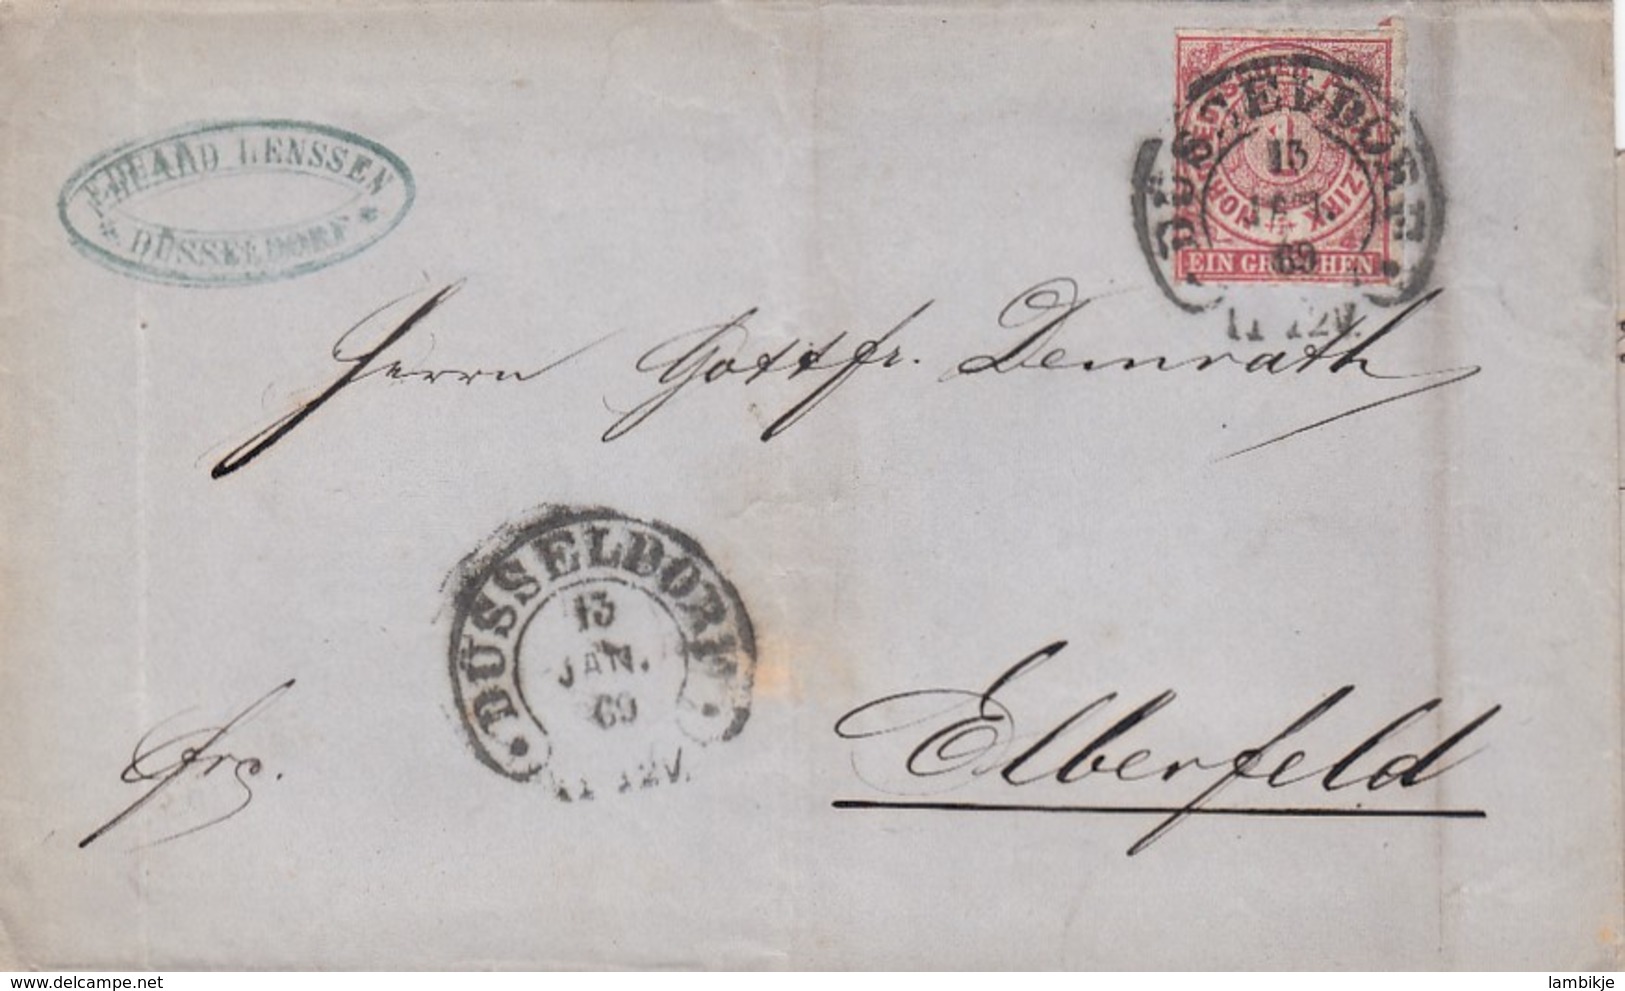 EDUARD LENSSEN
DÜSSELDORF
NORDDEUTSCHER POSTBEZIRK
1
EIN GROSCHEN
DÜSSELDORF
13
69
11 12V.
Herrn Gottfr. Demrath
DÜSSELDORF
13
JAN.
69
11 12V.
Elberfeld
frco.
www.delcampe.net
lambikje